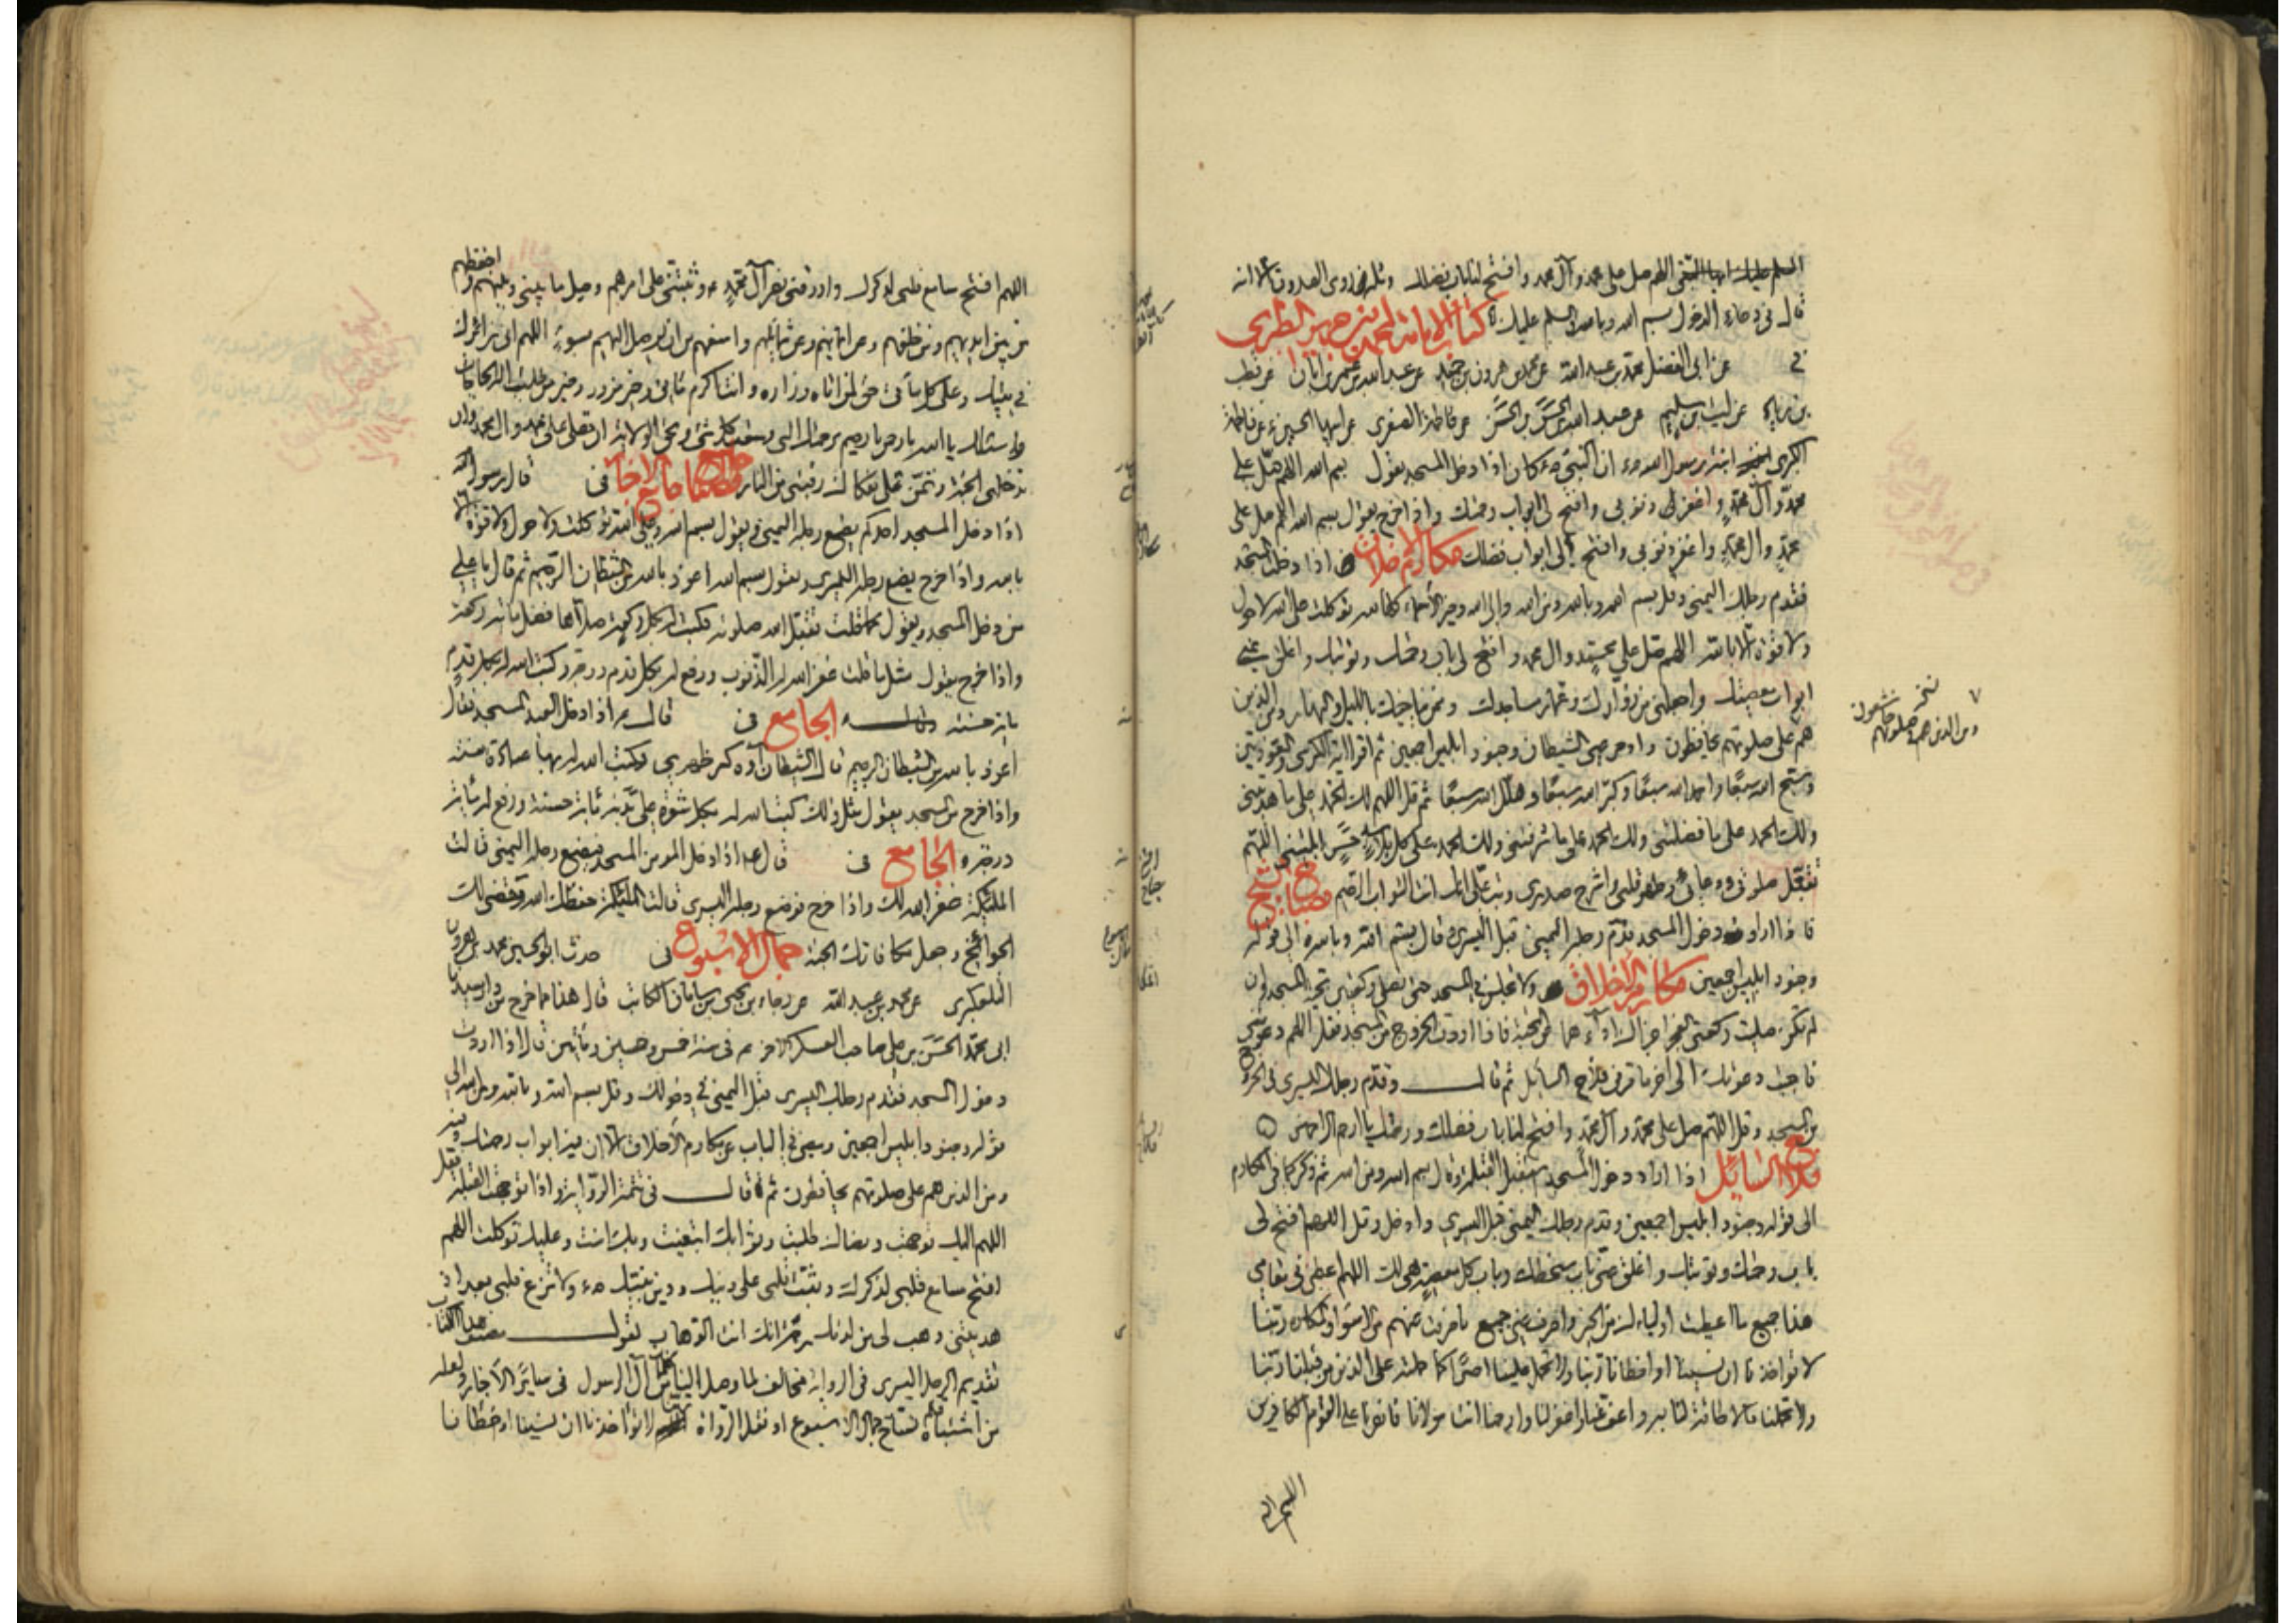 السلم عليك ايها النبى اللهم صل على محمد وآل محمد وافتح لنا باب فضلك روى الصدوق الا انه
قال فى دعاء الدخول بسم الله وبالله السلم عليك كتاب الامامة لمحمد بن جرير الطبرى
عن ابى الفضل محمد بن عبد الله عن محمد بن هرون بن حميد عن عبد الله بن عمر بن ابان عن قطب
بن زياد عن ليث بن سليم عن عبد الله بن الحسن بن الحسن عن فاطمة الصغرى عن ابيها الحسين عن فاطمة
الكبرى ابنة رسول الله ان النبى كان اذا دخل المسجد يقول بسم الله اللهم صل على
محمد وآل محمد واغفر لى ذنوبى وافتح لى ابواب رحمتك واذا خرج يقول بسم الله اللهم صل على
محمد وال محمد واغفر ذنوبى وافتح لى ابواب فضلك مكارم الاخلاق اذا دخلت المسجد
فقدم رجلك اليمنى وقل بسم الله وبالله ومن الله والى الله وخير الأسماء كلها لله توكلت على الله لا حول
ولا قوة الا بالله اللهم صل على محمد وال محمد وافتح لى باب رحمتك وتوبتك واغلق عنى
ابواب معصيتك واجعلنى من زوارك وعمار مساجدك وممن يناجيك بالليل والنهار ومن الذين
هم على صلوتهم يحافظون وادحر عنى الشيطان وجنود ابليس اجمعين ثم اقرا اية الكرسى والمعوذتين
وسبح الله سبعا واحمد الله سبعا وكبر الله سبعا وهلل الله سبعا ثم قل اللهم لك الحمد على ما هديتنى
ولك الحمد على ما فضلتنى ولك الحمد على ما شرفتنى ولك الحمد على كل بلاء حسن ابليتنى اللهم
تقبل صلوتى ودعائى وطهر قلبى واشرح صدرى وتب على انك انت التواب الرحيم مصابيح
فاذا اراد دخول المسجد قدم رجله اليمنى قبل اليسرى وقال بسم الله وبالله الى قوله
وجنود ابليس اجمعين مكارم الاخلاق ولا تجلس فى المسجد حتى تصلى ركعتين تحية المسجد وان
لم تكن صليت ركعتى الفجر اجزاك اداءهما عن التحية فاذا اردت الخروج من المسجد فقل اللهم دعوتنى
فاجبت دعوتك الى آخر ما فى فلاح السائل ثم قال وقدم رجلك اليسرى فى الخروج
من المسجد وقل اللهم صل على محمد وآل محمد وافتح لنا باب فضلك ورحمتك يا ارحم الراحمين
فلاح السائل اذا اراد دخول المسجد يستقبل القبلة وقال بسم الله ومن الله ثم ذكر كما فى المكارم
الى قوله وجنود ابليس اجمعين وقدم رجلك اليمنى قبل اليسرى وادخل وقل اللهم افتح لى
باب رحمتك وتوبتك واغلق عنى باب سخطك وباب كل معصية هى لك اللهم اعطنى فى مقامى
هذا جميع ما اعطيت اولياءك من الخير واصرف عنى جميع ما صرفته عنهم من الاسواء والمكاره ربنا
لا تؤاخذنا ان نسينا او اخطانا ربنا ولا تحمل علينا اصرا كما حملته على الذين من قبلنا ربنا
ولا تحملنا ما لا طاقة لنا به واعف عنا واغفر لنا وارحمنا انت مولانا فانصرنا على القوم الكافرين
ومن الذين هم فى صلوتهم خاشعون
اللهم افتح
اللهم افتح مسامع قلبى لذكرك وارزقنى نصر آل محمد وثبتنى على امرهم وصل ما بينى وبينهم واحفظهم
من بين ايديهم ومن خلفهم وعن ايمانهم وعن شمائلهم وامنعهم من ان يوصل اليهم بسوء اللهم انى زائرك
فى بيتك وعلى كل مأتى حق لمن اتاه وزاره وانت اكرم مأتى وخير مزور وخير من طلبت اليه الحاجات
واسئلك يا الله يا رحمن يا رحيم برحمتك التى وسعت كل شئ وبحق الولاية ان تصلى على محمد وال محمد وان
تدخلنى الجنة وتمن على بفكاك رقبتى من النار جامع الاخبار فى قال رسول الله
اذا دخل المسجد احدكم يضع رجله اليمنى ويقول بسم الله وعلى الله توكلت ولا حول ولا قوة الا
بالله واذا خرج يضع رجله اليسرى ويقول بسم الله اعوذ بالله من الشيطان الرجيم ثم قال يا على
من دخل المسجد ويقول كما قلت تقبل الله صلوته وكتب له بكل ركعة صلاها فضل مائة ركعة
واذا خرج يقول مثل ما قلت غفر الله له الذنوب ورفع له بكل قدم درجة وكتب الله له بكل قدم
مائة حسنة الجامع فى قال اذا دخل العبد المسجد فقال
اعوذ بالله من الشيطان الرجيم قال الشيطان اوه كسر ظهرى وكتب الله له بها عبادة سنة
واذا خرج من المسجد يقول مثل ذلك كتب الله له بكل شعرة على بدنه مائة حسنة ورفع له مائة
درجة الجامع فى قال اذا دخل المومن المسجد فيضع رجله اليمنى قالت
الملئكة غفر الله لك واذا خرج فوضع رجله اليسرى قالت الملئكة حفظك الله وقضى لك
الحوائج وجعل مكافاتك الجنة جمال الاسبوع فى حدث ابو الحسين محمد بن هرون
التلعكبرى عن محمد بن عبيد الله عن رجاء بن يحيى بن سامان الكاتب قال هذا مما خرج من دار سيدنا
ابى محمد الحسن بن على صاحب العسكر الاخر فى سنة خمس وخمسين ومأتين قال اذا اردت
دخول المسجد فقدم رجلك اليسرى قبل اليمنى فى دخولك وقل بسم الله وبالله ومن الله الى
قوله وجنود ابليس اجمعين وسبق فى الباب عن مكارم الاخلاق الا ان فيه ابواب رحمتك وفيه
ومن الذين هم على صلوتهم يحافظون ثم قال فى تتمة الرواية واذا توجهت القبلة فقل
اللهم اليك توجهت ورضاك طلبت وثوابك ابتغيت وبك امنت وعليك توكلت اللهم
افتح مسامع قلبى لذكرك وثبت قلبى على دينك ودين نبيك ولا تزغ قلبى بعد اذ
هديتنى وهب لى من لدنك رحمة انك انت الوهاب يقول مصنف هذا الكتاب
تقديم الرجل اليسرى فى الرواية مخالف لما وصل الينا من آل الرسول فى سائر الاخبار ولعله
من اشتباه قلم نساخ جمال الاسبوع او نقلة الرواة لا تؤاخذنا ان نسينا او اخطانا